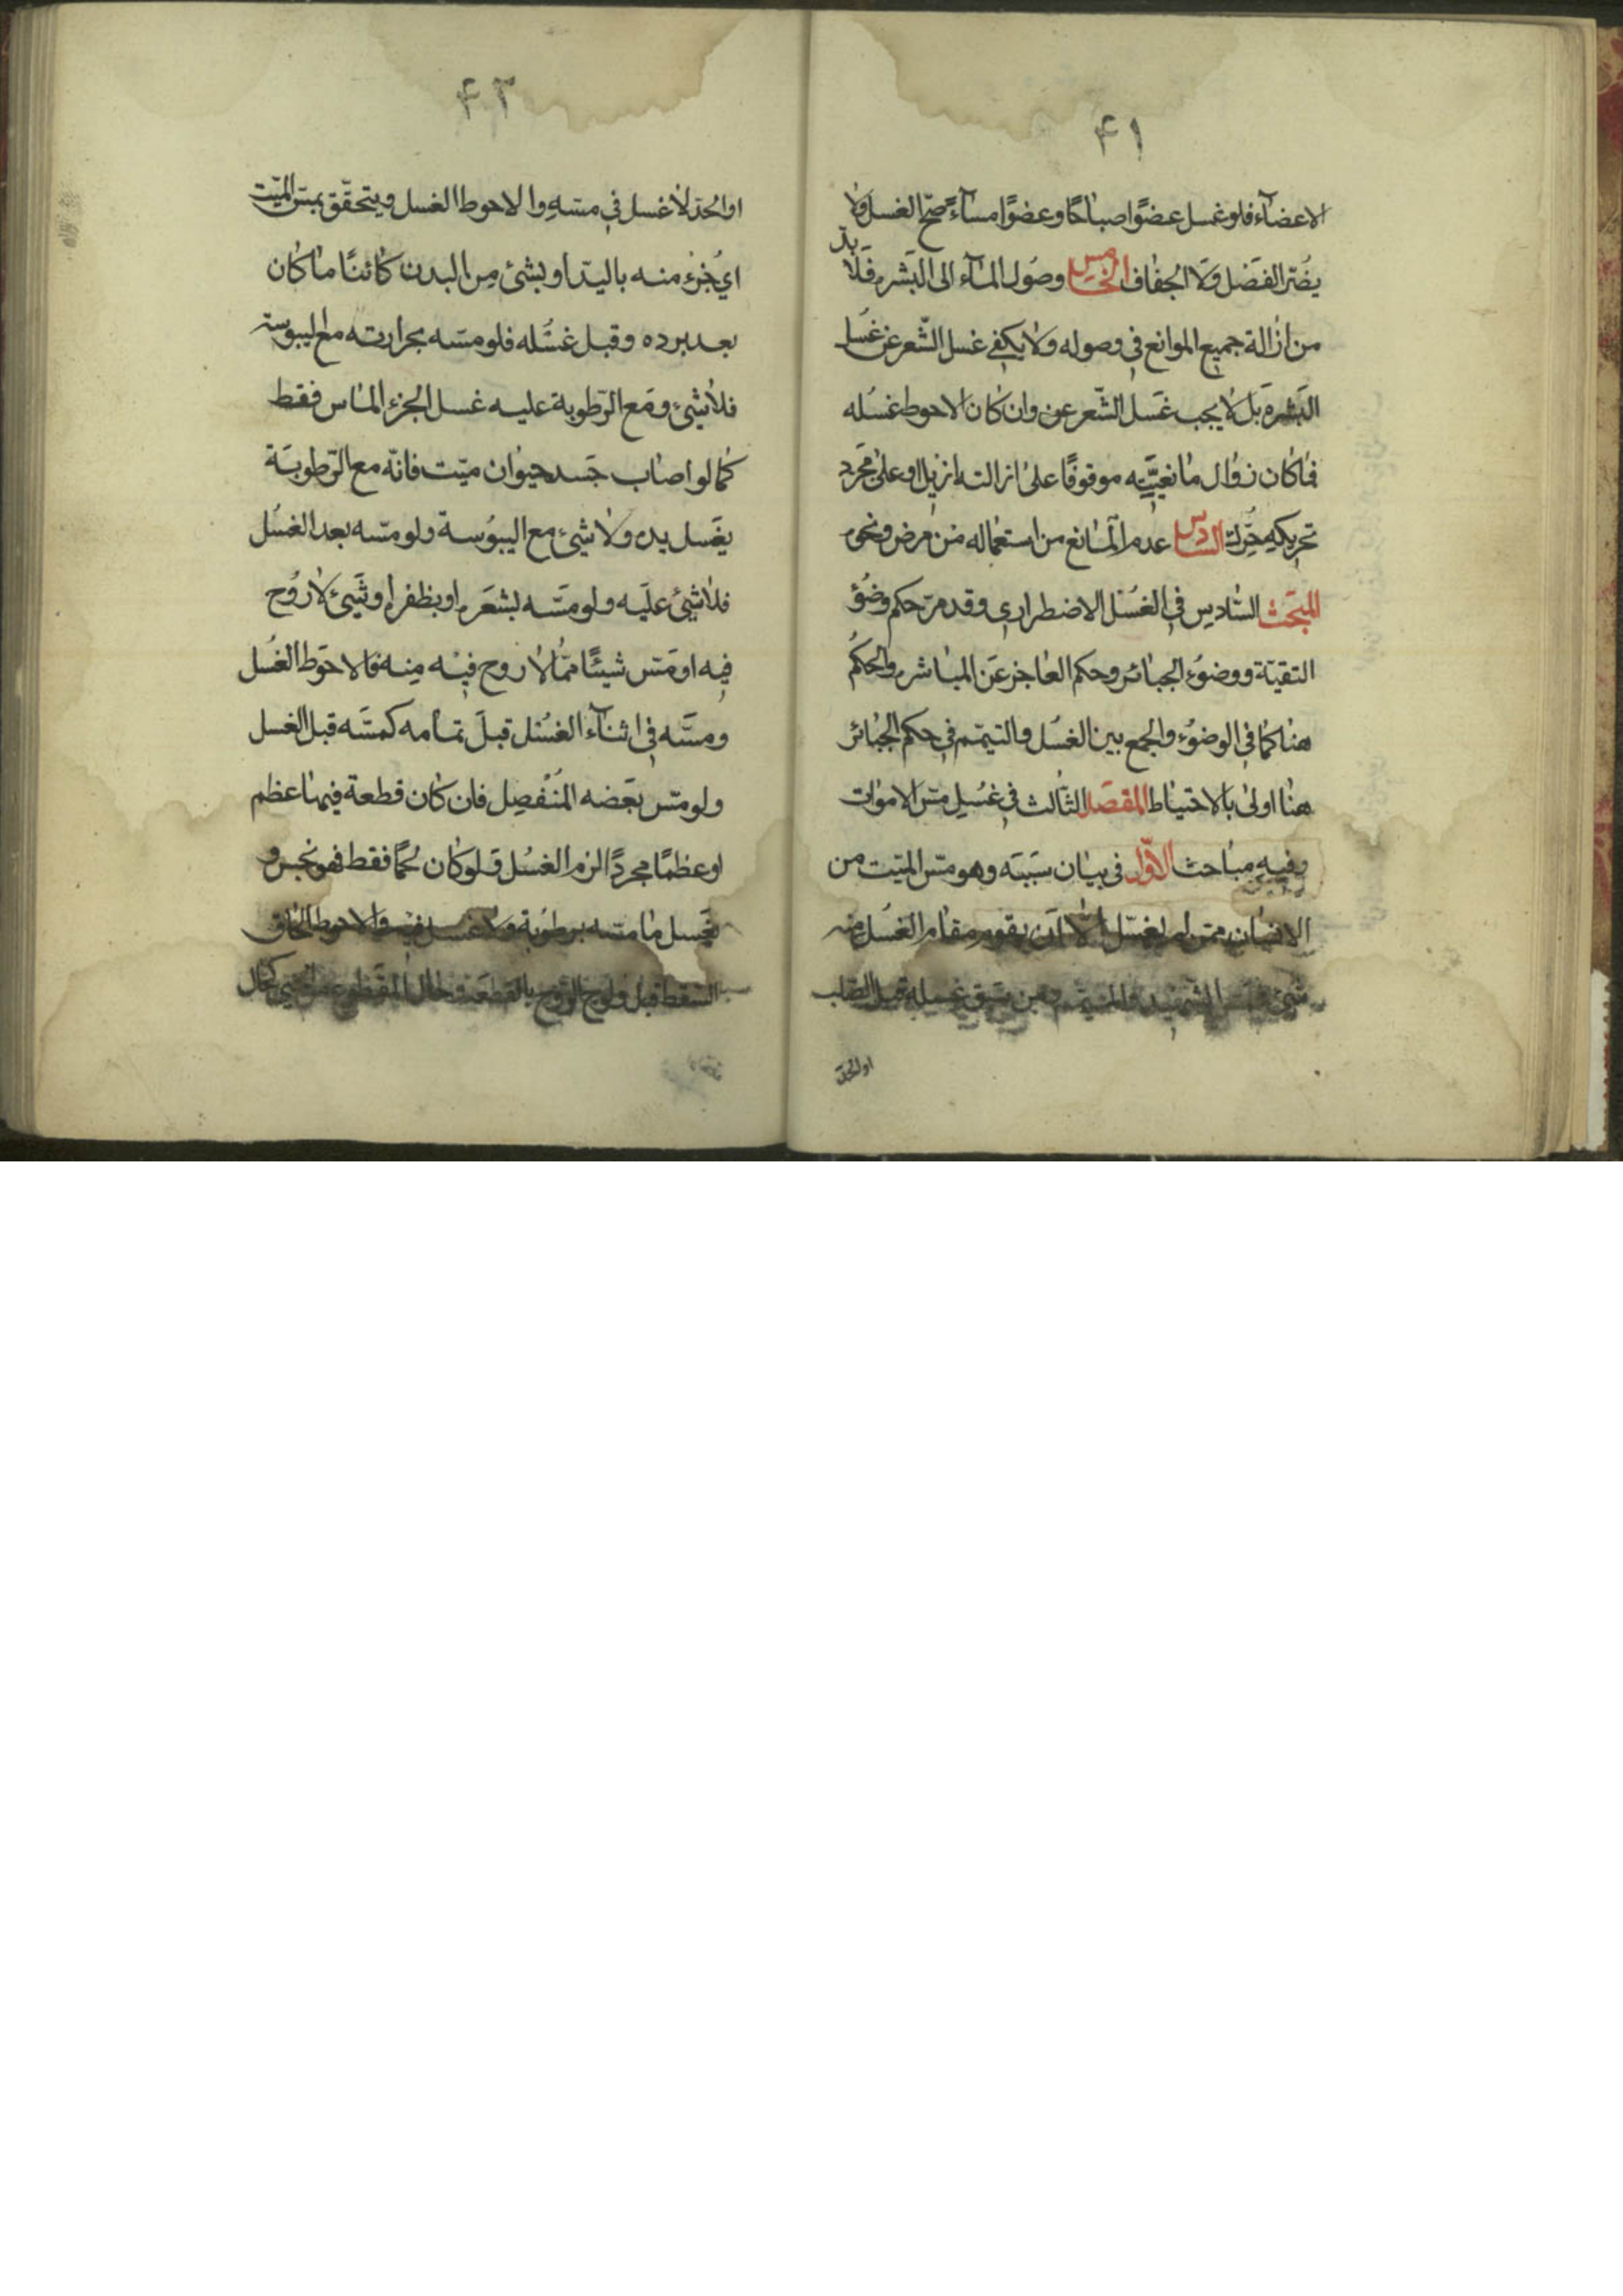 ۴۱
الاعضآء فلو غسل عضوًا صباحًا وعضوًا مسآءً صحّ الغسل ولا
يضرّ الفصل ولا الجفاف الخامس وصول المآء الى البشره فلا بدّ
من ازالة جميع الموانع في وصوله ولا يكفي غسل الشّعر عن غسل
البشره بل لا يجب غسل الشّعر عن وان كان الاحوط غسله
فما كان زوال مانعيّته موقوفًا على ازالته ازيل او على مجرد
تحريكه حرّك السّادس عدم المانع من استعماله من مرض ونحوه
المبحث السّادس في الغسل الاضطراري وقد مرّ حكم وضوُ
التقيّة ووضوء الجبائر وحكم العاجز عن المباشره والحكم
هنا كما في الوضوء والجمع بين الغسل والتيمّم في حكم الجبائر
هنا اولى بالاحتياط المقصد الثالث في غسل مسّ الاموات
وفيه مباحث الاوّل في بيان سببه وهو مسّ الميّت من
الانسان ممّن لم يغسّل الّا ان يقوم مقام الغسل منه
شيء فمسّ الشهيد والمتيمّم ومن سبق غسله قبل الصّلب
او الحدّ
۴۳
او الحدّ لا غسل في مسّه والاحوط الغسل ويتحقّق بمسّ الميّت
اي جزء منه باليد او بشئ من البدن كائنًا ما كان
بعد برده وقبل غسله فلو مسّه بحرارته مع اليبوسة
فلا شئ ومع الرّطوبة عليه غسل الجزء الماس فقط
كما لو اصاب جسد حيوان ميّت فانّه مع الرّطوبة
يغسل يده ولا شئ مع اليبوسة ولو مسّه بعد الغسل
فلا شئ عليه ولو مسّه بشعره او بظفره او شئ لا روح
فيه او مسّ شيئًا ممّا لا روح فيه منه فالاحوط الغسل
ومسّه في اثنآء الغسل قبل تمامه كمسّه قبل الغسل
ولو مسّ بعضه المنفصل فان كان قطعة فيها عظم
او عظمًا مجردًا لزم الغسل ولو كان لحمًا فقط فهو نجس و
يغسل ما مسّه برطوبة ولا غسل فيه والاحوط الحاق
السّقط قبل ولوج الرّوح بالقطعة وحال المقطوعة من الحيّ كحال